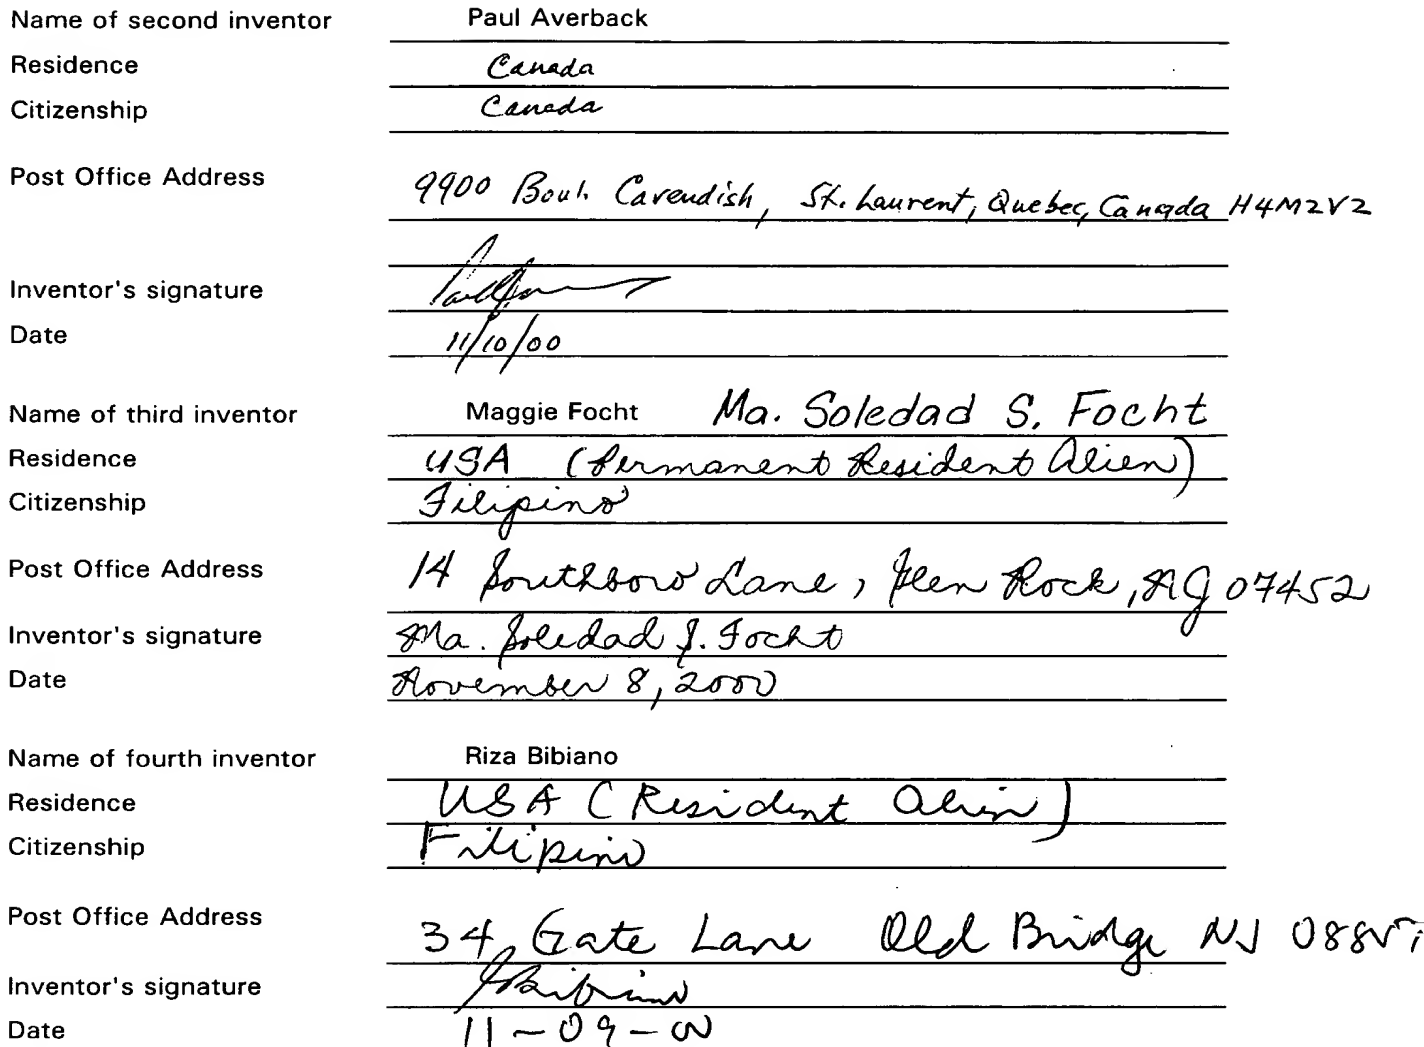 Name of second inventor Paul Averback
Residence Canada
Citizenship Canada
Post Office Address 9900 Boul. Cavendish, St. Laurent, Quebec, Canada H4M2V2
Inventor's signature
Date 11/10/00
Name of third inventor Maggie Focht Ma. Soledad S. Focht
Residence USA (Permanent Resident Alien)
Citizenship Filipino
Post Office Address 14 Southboro Lane, Glen Rock, NJ 07452
Inventor's signature Ma. Soledad S. Focht
Date November 8, 2000
Name of fourth inventor Riza Bibiano
Residence USA (Resident Alien)
Citizenship Filipino
Post Office Address 34, Gate Lane Old Bridge NJ
Inventor's signature
Date 11-09-00